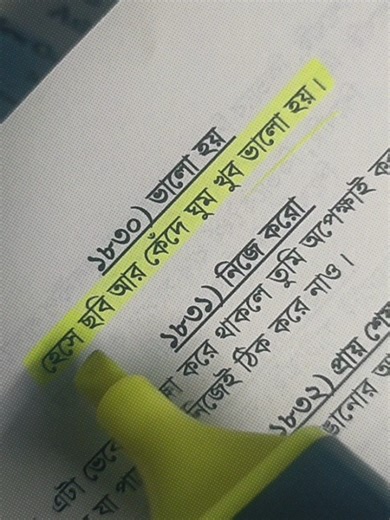 ১৮৩০) ভালো হয়
হেসে ছবি আর কেঁদে ঘুম খুব ভালো হয়।
১৮৩১) নিজে করো
করে থাকলে তুমি অপেক্ষাই
নিজেই ঠিক করে নাও।
১৮৩২) প্রায় শেষ
এটা ভেবে
যা